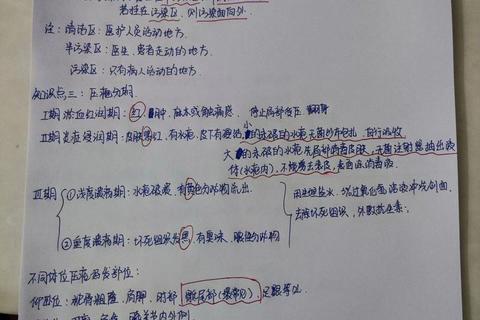 若挂在污染区,则污染面向外.
注:清洁区:医护人员活动地方.
半污染区:医生、患者走动的地方.
污染区:只有病人活动的地方.
知识点三:压疮分期.
I期 淤血红润期:红、肿、麻木或触痛感. 停止局部受压 翻身
II期 炎症浸润期:皮肤紫红,有水疱,皮下有硬结 小的未破的水疱无菌纱布包扎,自行吸收
大的未破的水疱先局部消毒皮肤,无菌注射器抽出液
体(水疱内),不能剪去表皮,表面涂消毒液
III期
①浅度溃疡期:水疱破溃,有黄色分泌物流出.
用生理盐水、3%过氧化氢溶液冲洗创面,
去除坏死组织,外敷抗生素;
②重度溃疡期:坏死组织发黑,有臭味,脓性分泌物
不同体位压疮易发部位:
仰卧位:枕骨粗隆、肩胛、肘部、骶尾部(最常见)、足跟等处